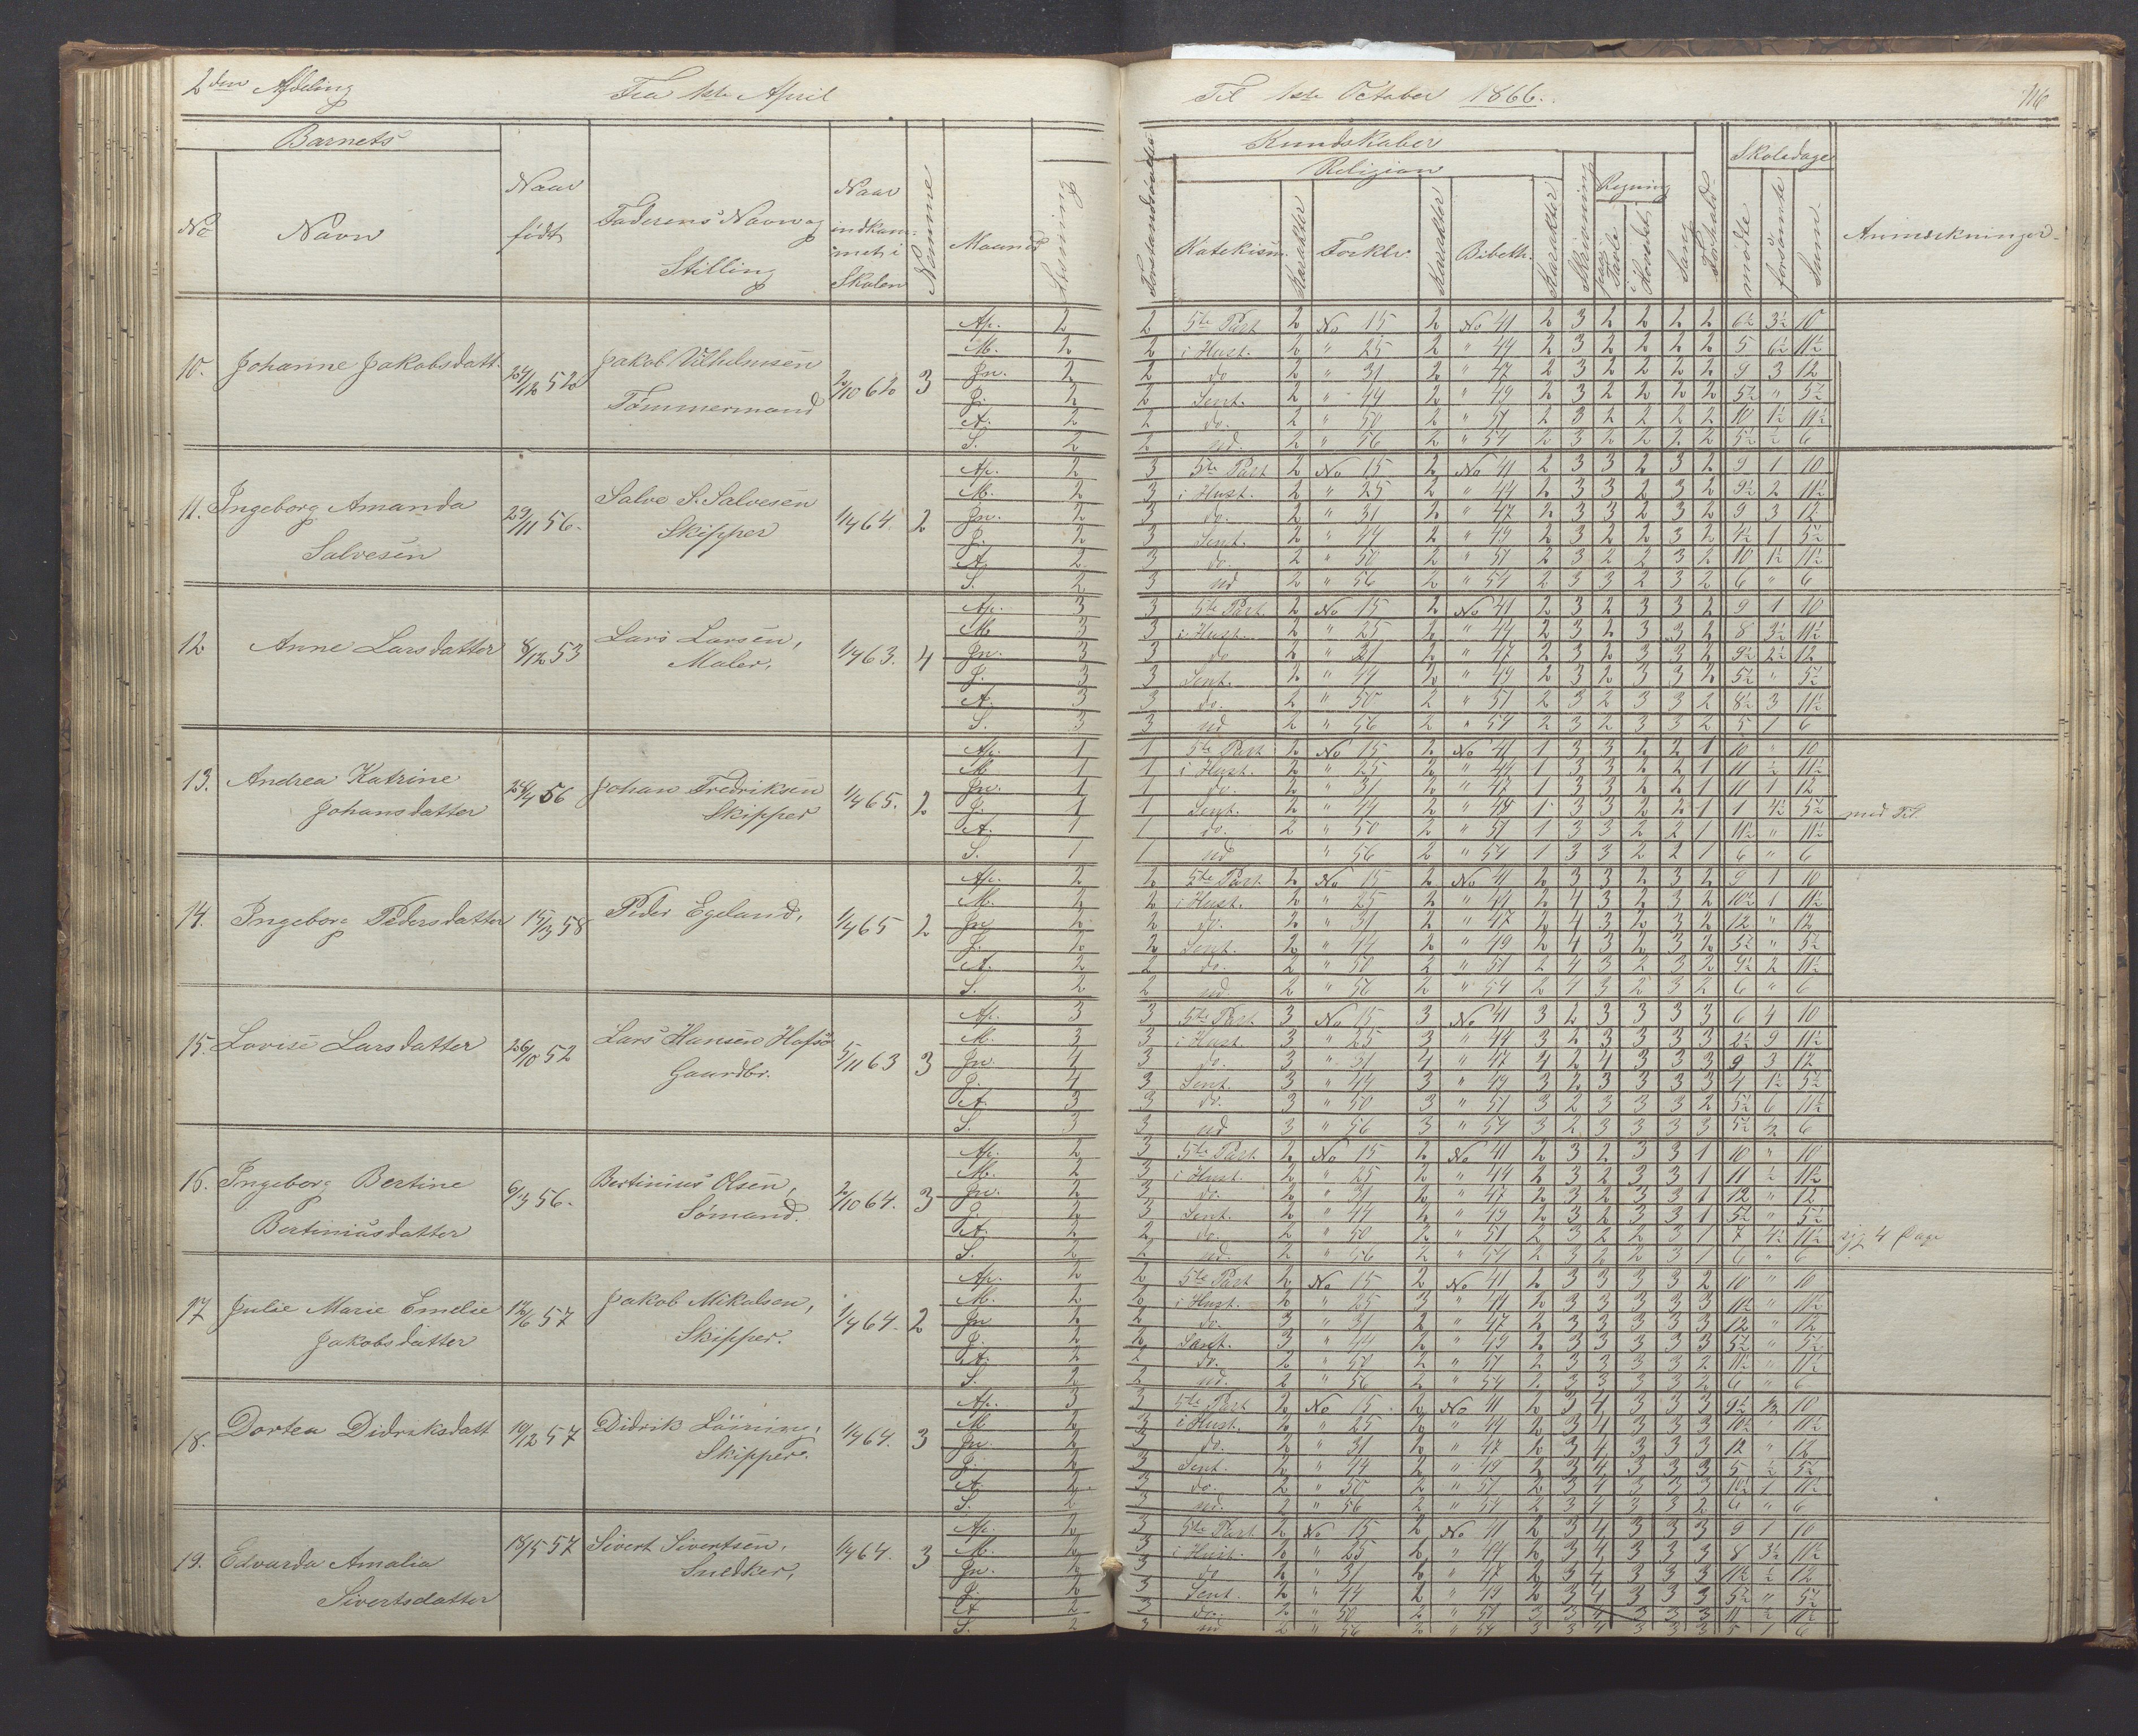 2den Afdeling Fra 1ste April
Til 1ste October 1866. 116
Barnets
No Navn
Naar født
Faderens Navn og Stilling
Naar indkommet i Skolen
Nemme
Maaned
Stavning
Forstandsøvelse
Kundskaber
Religion
Katekism. Karakter Forklr. Karakter Bibelh. Karakter
Skrivning
Regning
paa Tavle
i Hovedet
Sang
Forhold
Skoledage
mødte forsømte Summ
Anmærkninger
10. Johanne Jakobsdatt. 24/12 52 Jakob Vilhelmsen 2/10 62 3
Tømmermand
Ap. 2 2 5te Part 2 No 15 2 No 41 2 3 2 2 2 2 6½ 3½ 10
M. 2 2 i Hust. 2 " 25 2 " 44 2 3 2 2 2 2 5 6½ 11½
Jn. 2 2 do 2 " 31 2 " 47 2 3 2 2 2 2 9 3 12
J. 2 2 Sent. 2 " 44 2 " 49 2 3 2 2 2 2 5½ " 5½
A. 2 2 do. 2 " 50 2 " 51 2 3 2 2 2 2 10 1½ 11½
S. 2 2 ud. 2 " 56 2 " 54 2 3 2 2 2 2 5½ ½ 6
11. Ingeborg Amanda 29/11 56. Salve S. Salvesen 1/4 64. 2
Salvesen Skipper
Ap. 2 3 5te Part 2 No 15 2 No 41 2 3 3 2 3 2 9 1 10
M. 2 3 i Hust. 2 " 25 2 " 44 2 3 3 2 3 2 9½ 2 11½
Jn. 2 3 do. 2 " 31 2 " 47 2 3 3 2 3 2 9 3 12
J. 2 3 Sent. 2 " 44 2 " 49 2 3 2 2 3 2 4½ 1 5½
A. 2 3 do. 2 " 50 2 " 51 2 3 2 2 3 2 10 1½ 11½
S. 2 3 ud 2 " 56 2 " 54 2 3 3 2 3 2 6 " 6
12 Anne Larsdatter 8/12 53 Lars Larsen, 1/4 63. 4
Maler,
Ap. 3 3 5te Part. 2 No 15 2 No 41 2 3 2 3 3 2 9 1 10
M 3 3 i Hust. 2 " 25 2 " 44 2 3 2 3 3 2 8 3½ 11½
Jn. 3 3 do 2 " 31 2 " 47 2 3 2 3 3 2 9½ 2½ 12
J. 3 3 Sent. 2 " 44 2 " 49 2 3 2 3 3 2 5½ " 5½
A. 3 3 do. 2 " 50 2 " 51 2 3 2 3 3 2 8½ 3 11½
S. 3 3 ud 2 " 56 2 " 54 2 3 2 3 3 2 5 1 6
13. Andrea Katrine 24/4 56 Johan Fredriksen 1/4 65. 2
Johansdatter Skipper
Ap. 1 1 5te Part 2 No 15 2 No 41 1 3 3 2 2 1 10 " 10
M 1 1 i Hust. 2 " 25 2 " 44 1 3 3 2 2 1 11 ½ 11½
Jn. 1 1 do. 2 " 31 2 " 47 1 3 3 2 2 1 11 1 12
J. 1 1 Sent. 2 " 44 2 " 48 1 3 3 2 2 1 1 4½ 5½ med Till.
A. 1 1 do. 2 " 50 2 " 51 1 3 3 2 2 1 11½ " 11½
S. 1 1 ud " 56 2 " 54 1 3 3 2 2 1 6 " 6
14. Ingeborg Pedersdatter 15/3 58 Peder Egeland, 1/4 65 2
Ap. 2 2 5te Part. 2 No 15 2 No 41 2 3 3 2 3 2 9 1 10
M. 2 2 i Hust. 2 " 25 2 " 44 2 4 3 2 3 2 10½ 1 11½
Jn 2 2 do. 2 " 31 2 " 47 2 4 3 2 3 2 12 " 12
J. 2 2 Sent. 2 " 44 2 " 49 2 4 3 2 3 2 5½ " 5½
A. 2 2 do. 2 " 50 2 " 51 2 4 3 2 3 2 9½ 2 11½
S. 2 2 ud. 2 " 56 2 " 54 2 4 3 2 3 2 6 " 6
15. Lovise Larsdatter 26/10 52 Lars Hansen Hafsø 5/11 63 3
Gaardbr.
Ap. 3 3 5te Part. 3 No 15 3 No 41 3 2 3 3 3 3 6 4 10
M. 3 3 i Hust. 3 " 25 3 " 44 3 2 3 3 3 3 2½ 9 11½
Jn 4 3 do. 3 " 31 4 " 47 4 2 4 3 3 3 9 3 12
J. 4 3 Sent. 3 " 44 3 " 49 3 2 3 3 3 3 4 1½ 5½
A. 3 3 do. 3 " 50 3 " 51 3 2 3 3 3 2 5½ 6 11½
S. 3 3 ud 3 " 56 3 " 54 3 2 3 3 3 3 5½ ½ 6
16. Ingeborg Bertine 6/3 56. Bertinius Olsen, 2/10 64. 3
Bertiniusdatter Sømand.
Ap. 2 3 5te Part. 2 No 15 2 No 41 2 3 2 3 3 1 10 " 10
M. 2 3 i Hust. 2 " 25 2 " 44 2 3 2 3 3 1 11 ½ 11½
Jn. 2 3 do. 2 " 31 2 " 47 2 3 2 3 3 1 12 " 12
J. 2 3 Sent. 2 " 44 2 " 49 2 3 2 3 3 1 5½ " 5½
A. 2 2 do. 2 " 50 2 " 51 2 3 2 2 3 1 7 4½ 11½ syg 4 Dage
S. 2 2 ud. 2 " 56 2 " 54 2 3 2 2 3 1 6 " 6
17 Julie Marie Emelie 12/6 57 Jakob Mikalsen, 1/4 64. 2
Jakobsdatter Skipper.
Ap. 2 2 5te Part 2 No 15 2 No 41 2 3 3 3 3 2 10 " 10
M. 2 2 i Hust. 2 " 25 3 " 44 2 3 3 3 3 3 11½ " 11½
Jn 2 2 do. 3 " 31 2 " 47 2 3 3 3 3 3 12 " 12
J. 2 2 Sent. 3 " 44 2 " 49 2 3 3 3 3 3 5½ " 5½
A. 2 2 do. 2 " 50 2 " 51 2 3 3 3 3 2 11½ " 11½
S. 2 2 ud. 2 " 56 2 " 54 2 3 3 3 3 2 6 " 6
18. Dortea Didriksdatt 10/12 57 Didrik Löining, 1/4 64. 3
Skipper.
Ap. 3 3 5te Part 2 No 15 2 No 41 2 3 4 3 3 3 9½ ½ 10
M 2 3 i Hust. 2 " 25 2 " 44 2 3 4 3 3 3 10½ 1 11½
Jn. 2 3 do. 2 " 31 2 " 47 2 3 4 3 3 3 12 " 12
J. 2 3 Sent. 2 " 44 2 " 49 2 3 4 3 3 3 5 ½ 5½
A. 2 3 do. 2 " 50 2 " 51 2 3 4 3 3 3 10½ 1 11½
S. 2 3 ud. 2 " 56 2 " 54 2 3 4 3 3 2 6 " 6
19. Edvarda Amalia 18/5 57 Sivert Sivertsen, 1/4 64. 3
Sivertsdatter Snedker,
Ap. 2 3 5te Part 2 No 15 2 No 41 2 3 4 3 3 3 9 1 10
M. 2 3 i Hust. 2 " 25 2 " 44 2 3 4 3 3 3 8 3½ 11½
Jn. 2 3 do 2 " 31 2 " 47 2 3 4 3 3 3 11½ ½ 12
J. 2 3 Sent. 2 " 44 2 " 49 2 3 4 3 3 3 5½ " 5½
A 2 3 do. 2 " 50 2 " 51 3 3 4 3 3 3 11 ½ 11½
S. 2 3 ud 2 " 56 2 " 54 3 3 4 3 3 3 5 1 6